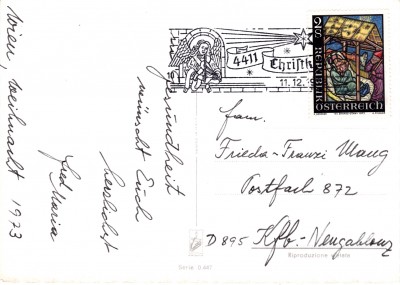 Wien, Weihnacht 1973
Gesundheit
wünscht Euch
herzlichst
Maria
4411
Christk
11.12.19
2S
REPUBLIK
ÖSTERREICH
Fam.
Frieda-Franzi Wang
Postfach 872
D 895 Kfb.-Neugablonz
Serie D.687
Riproduzione vietata